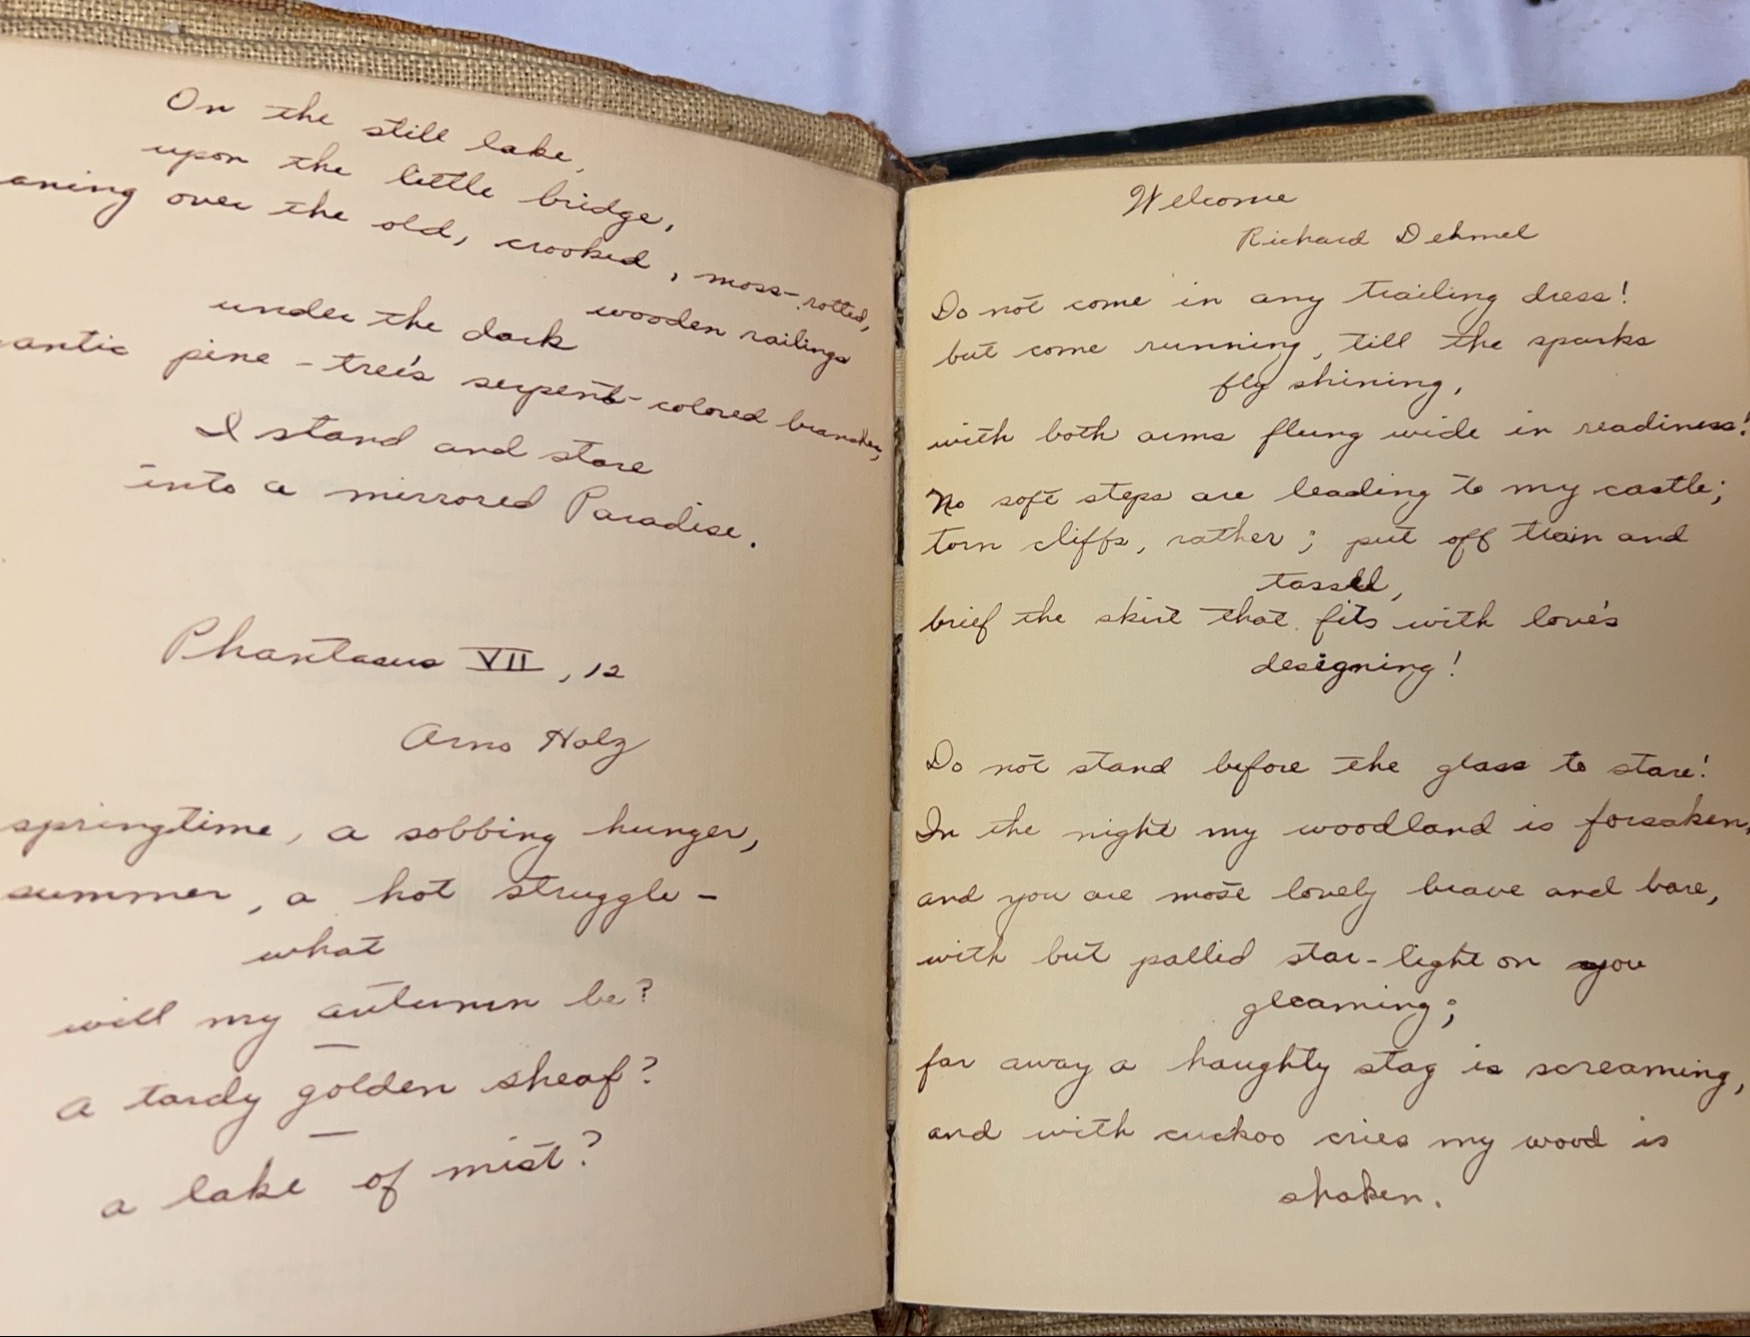 On the still lake,
upon the little bridge,
aning over the old, crooked, moss-rotted,
wooden railings
under the dark
antic pine-tree's serpent-colored branches,
I stand and stare
into a mirrored Paradise.
Phantasus VII, 12
Arno Holz
springtime, a sobbing hunger,
summer, a hot struggle -
what
will my autumn be?
a tardy golden sheaf?
a lake of mist?
Welcome
Richard Dehmel
Do not come in any trailing dress!
but come running, till the sparks
fly shining,
with both arms flung wide in readiness!
No soft steps are leading to my castle;
torn cliffs, rather; put off train and
tassel,
brief the skirt that fits with love's
designing!
Do not stand before the glass to stare!
In the night my woodland is forsaken,
and you are most lovely brave and bare,
with but pallid star-light on you
gleaming;
far away a haughty stag is screaming,
and with cuckoo cries my wood is
shaken.